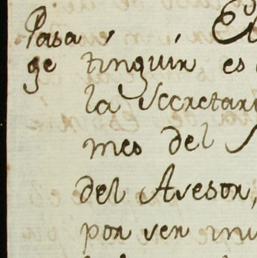 Pasa
ge tinguir es
la Secretari
mes del
del Avesor,
por ser inu